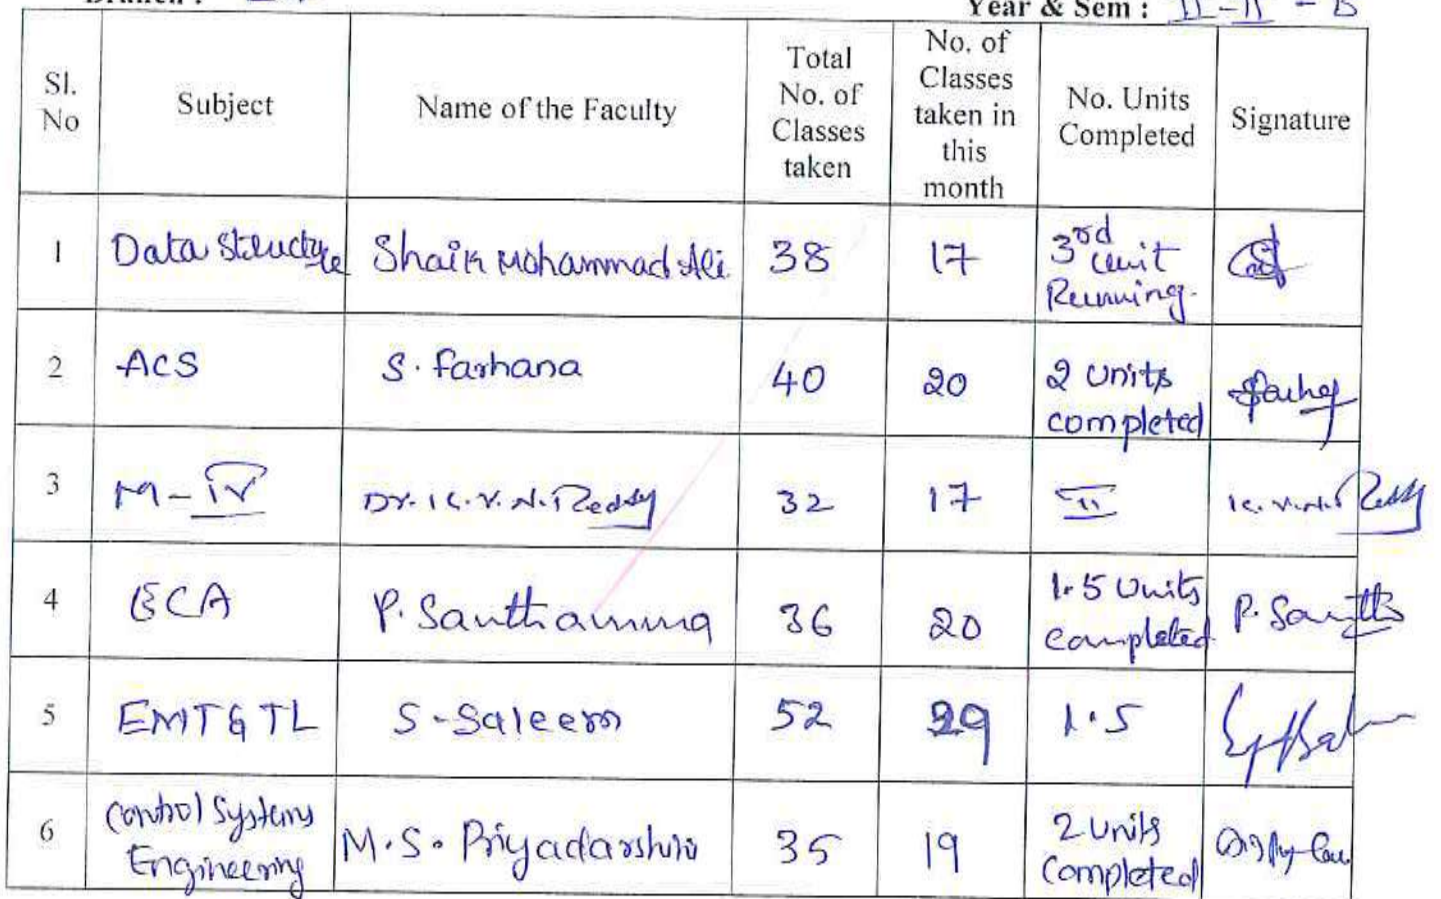 Year & Sem : II-II - B
Sl. No Subject Name of the Faculty Total No. of Classes taken No. of Classes taken in this month No. Units Completed Signature
1 Data Structure Shaik Mohammad Ali 38 17 3rd unit Running.
2 ACS S. Farhana 40 20 2 units completed
3 M-IV Dr. K.V.N. Reddy 32 17 II K.V.N. Reddy
4 ECA P. Santhamma 36 20 1.5 Units completed P. Santha
5 EMT & TL S-Saleem 52 29 1.5
6 Control Systems Engineering M.S. Priyadarshini 35 19 2 units Completed